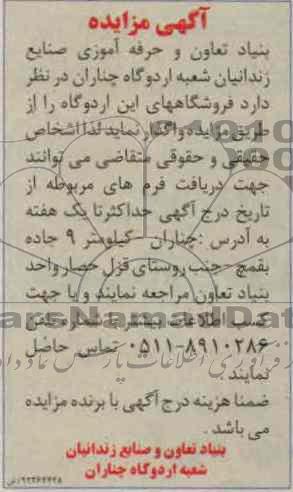 آگهی مزایده
بنیاد تعاون و حرفه آموزی صنایع
زندانیان شعبه اردوگاه چناران در نظر
دارد فروشگاههای این اردوگاه را از
طریق مزایده واگذار نماید لذا اشخاص
حقیقی و حقوقی متقاضی می توانند
جهت دریافت فرم های مربوطه از
تاریخ درج آگهی حداکثر تا یک هفته
به آدرس :چناران - کیلومتر ۹ جاده
بقمچ - جنب روستای قزل حصار واحد
بنیاد تعاون مراجعه نمایند و یا جهت
کسب اطلاعات بیشتر با شماره تلفن
۰۵۱۱-۸۹۱۰۲۸۶ تماس حاصل
نمایند .
ضمنا هزینه درج آگهی با برنده مزایده
می باشد .
بنیاد تعاون و صنایع زندانیان
شعبه اردوگاه چناران